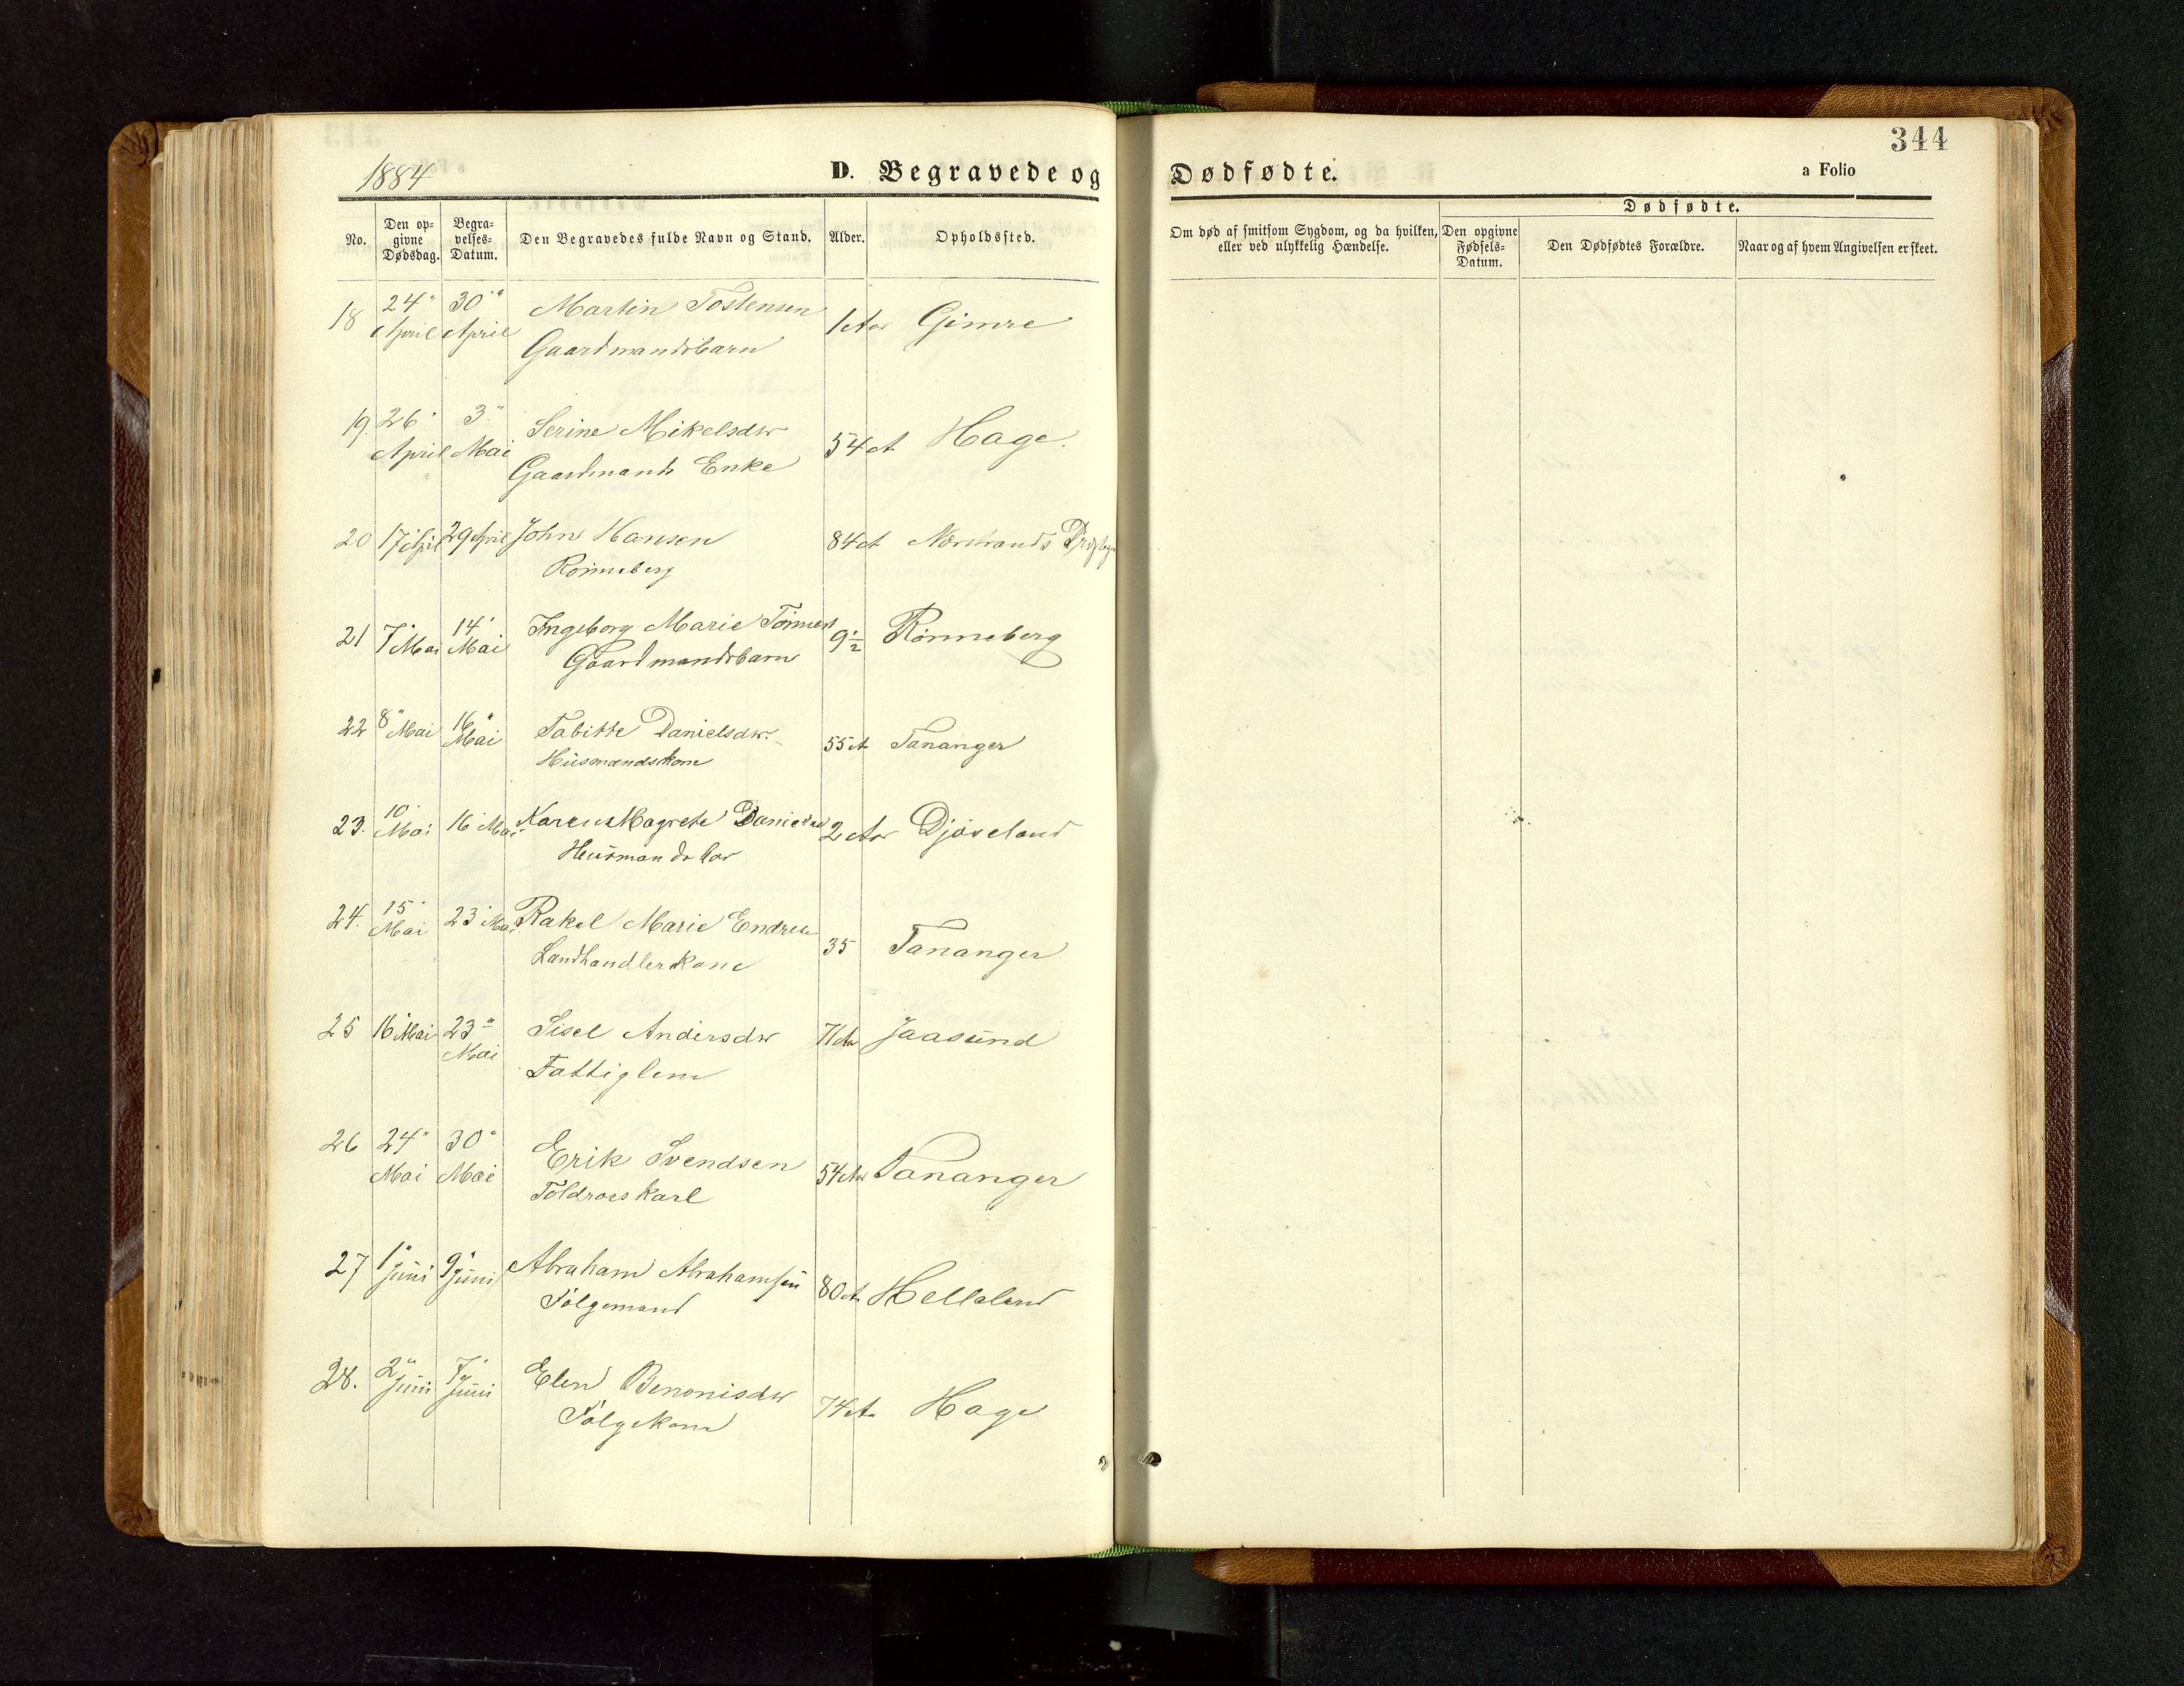 344
1884 D. Begravede og Dødfødte. a Folio
Dødfødte.
No. Den op- givne Dødsdag. Begra- velses- Datum. Den Begravedes fulde Navn og Stand. Alder. Opholdssted. Om død af smitsom Sygdom, og da hvilken, eller ved ulykkelig Hændelse. Den opgivne Fødsels- Datum. Den Dødfødtes Forældre. Naar og af hvem Angivelsen er skeet.
18 24" April 30" April Martin Tostensen 1 Aar Gimre
Gaardmandsbarn
19. 26" April 3" Mai Serine Mikelsdtr 54 A Hage.
Gaardmands Enke
20 17 April 29 April John Hansen 84 A Norstrands
Rönneberg
21 7" Mai 14" Mai Ingeborg Marie 9 1/2 Rönneberg
Gaardmandsbarn
22 8" Mai 16" Mai Tabitte Danielsdtr. 55 A Tananger
Husmandskone
23. 10" Mai 16 Mai Karen Magrete 2 Aar
Husmandsbar
24. 15" Mai 23" Mai Rakel Marie Endresen 35 Tananger
Landhandlerkone
25 16 Mai 23" Mai Sisel Andersdtr 71 Aar Jaasund
Fattiglem
26 24" Mai 30" Mai Erik Svendsen 54 Aar Tananger
Toldroerskarl
27 1" Juni 9" Juni Abraham Abrahamsen 80 A Helleland
Fölgemand
28. 2" Juni 7" Juni Elen Benonisdtr 74 A Hage
Fölgekone